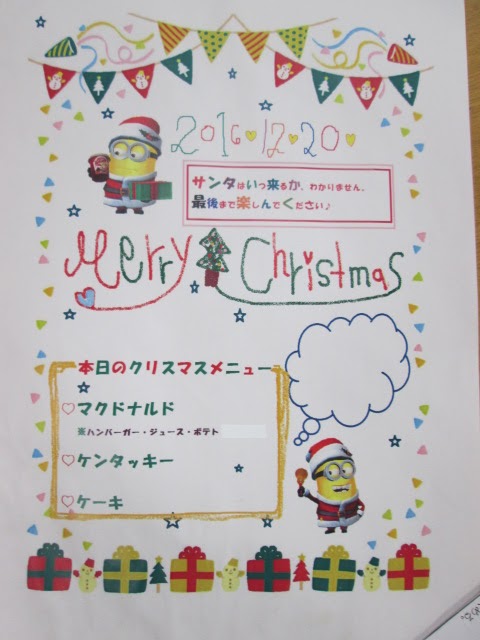 2016♡12♡20♡
サンタはいつ来るか、わかりません。
最後まで楽しんでください♪
Merry Christmas
本日のクリスマスメニュー
♡マクドナルド
※ハンバーガー・ジュース・ポテト
♡ケンタッキー
♡ケーキ